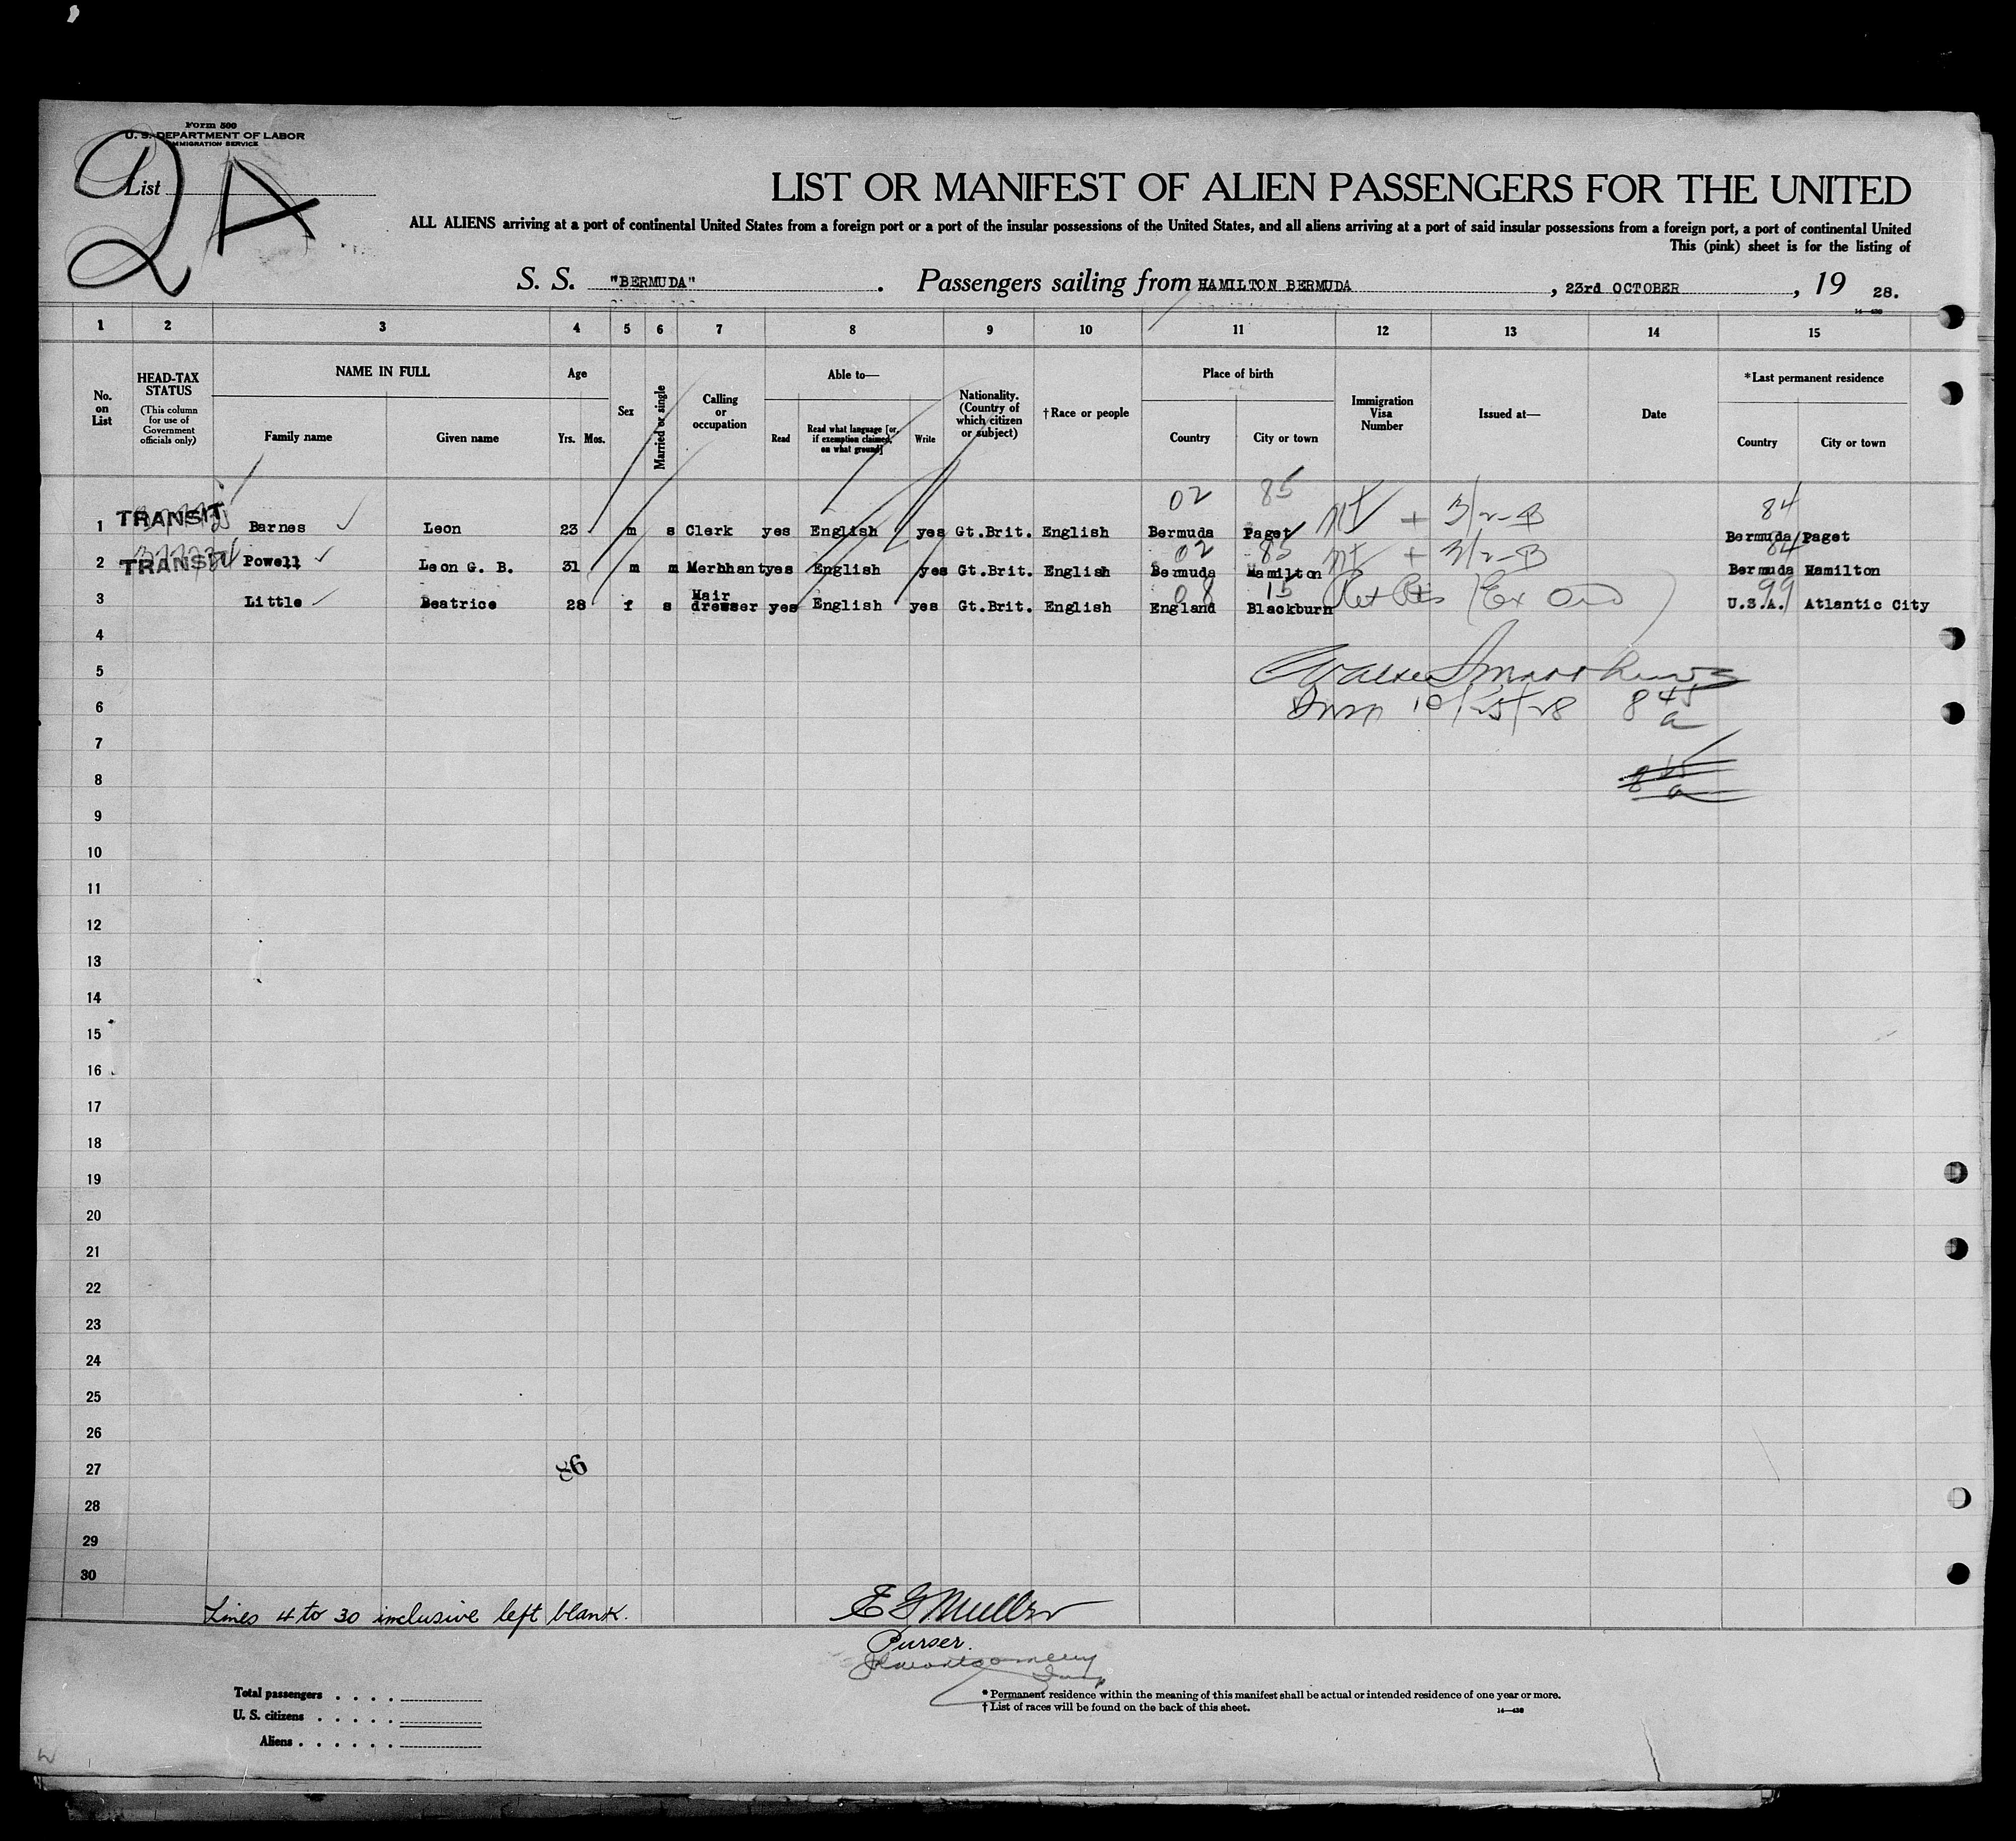 Form 500
U. S. DEPARTMENT OF LABOR
IMMIGRATION SERVICE
List 2A
LIST OR MANIFEST OF ALIEN PASSENGERS FOR THE UNITED
ALL ALIENS arriving at a port of continental United States from a foreign port or a port of the insular possessions of the United States, and all aliens arriving at a port of said insular possessions from a foreign port, a port of continental United
This (pink) sheet is for the listing of
S. S. "BERMUDA". Passengers sailing from HAMILTON BERMUDA, 23rd OCTOBER, 19 28.
1 2 3 4 5 6 7 8 9 10 11 12 13 14 15
No. on List
HEAD-TAX STATUS (This column for use of Government officials only)
NAME IN FULL
Family name Given name
Age
Yrs. Mos.
Sex
Married or single
Calling or occupation
Able to—
Read Read what language [or, if exemption claimed, on what ground] Write
Nationality. (Country of which citizen or subject)
†Race or people
Place of birth
Country City or town
Immigration Visa Number
Issued at—
Date
*Last permanent residence
Country City or town
02 85 84
1 TRANSIT Barnes Leon 23 m s Clerk yes English yes Gt.Brit. English Bermuda Paget + 3/2-B Bermuda Paget
02 85 84
2 TRANSIT Powell Leon G. B. 31 m m Merhhant yes English yes Gt.Brit. English Bermuda Hamilton + 3/2-B Bermuda Hamilton
08 15 99
3 Little Beatrice 28 f s Hair dresser yes English yes Gt.Brit. English England Blackburn U.S.A. Atlantic City
4
5
6 10/25/28 8 45 a
7
8
9
10
11
12
13
14
15
16
17
18
19
20
21
22
23
24
25
26
27 86
28
29
30
Lines 4 to 30 inclusive left blank. E G Muller
Purser.
Total passengers
U. S. citizens
Aliens
* Permanent residence within the meaning of this manifest shall be actual or intended residence of one year or more.
† List of races will be found on the back of this sheet.
14—430